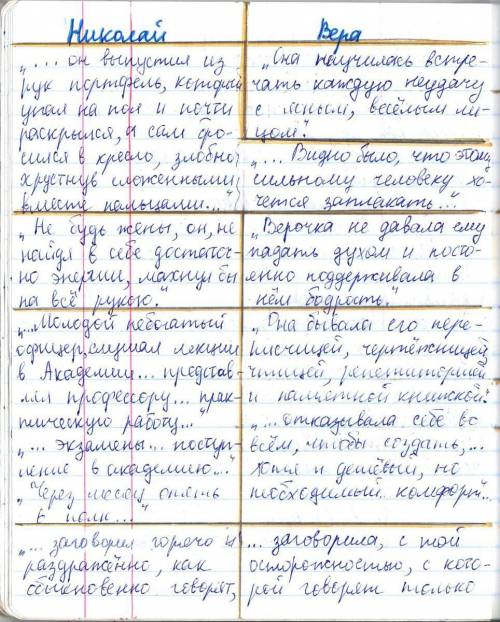 Николай
„... он выпустил из
рук портфель, который
упал на пол и почти
раскрылся, а сам бро-
сился в кресло, злобно
хрустнув сложенными
вместе пальцами..."
„Не будь жены, он, не
найдя в себе достаточ-
но энергии, махнул бы
на всё рукою."
„...Молодой небогатый
офицер, слушал лекции
в Академии... представ-
лял профессору... прак-
тическую работу..."
„... экзамены... поступ-
ление в академию..."
„Через месяц опять
в полк..."
„... заговорил горячо и
раздражённо, как
обыкновенно говорят,
Вера
„Она научилась встре-
чать каждую неудачу
с ясным, весёлым ли-
цом."
„... Видно было, что этому
сильному человеку хо-
чется заплакать..."
„Верочка не давала ему
падать духом и посто-
янно поддерживала в
нём бодрость."
„Она бывала его пере-
писчицей, чертёжницей,
чтицей, репетиторшей
и памятной книжкой."
„... отказывала себе во
всём, чтобы создать, ...
хотя и дешёвый, но
необходимый комфорт..."
„... заговорила, с той
осторожностью, с кото-
рой говорят только